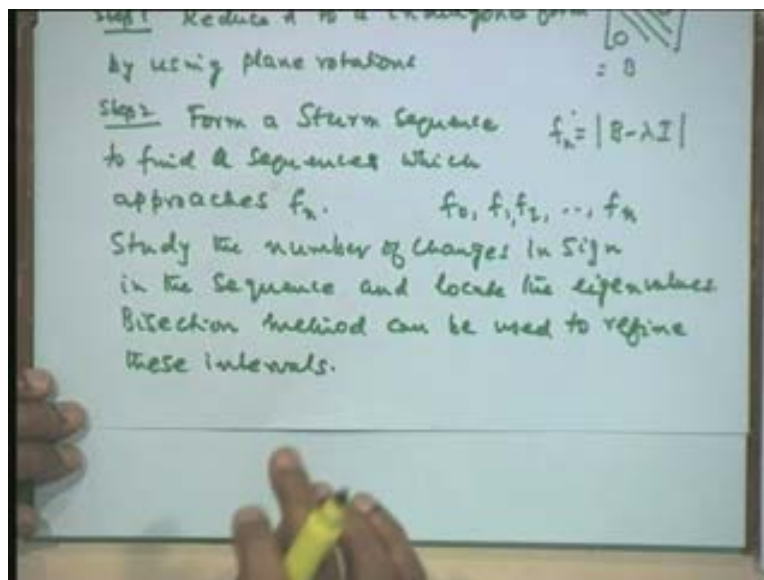 Step 1 Reduce A to a tridiagonal form
by using plane rotations = B
Step 2 Form a Sturm Sequence fₙ = |B-λI|
to find a sequences which
approaches fₙ. f₀, f₁, f₂, .., fₙ
Study the number of changes in sign
in the sequence and locate the eigenvalues.
Bisection method can be used to refine
these intervals.